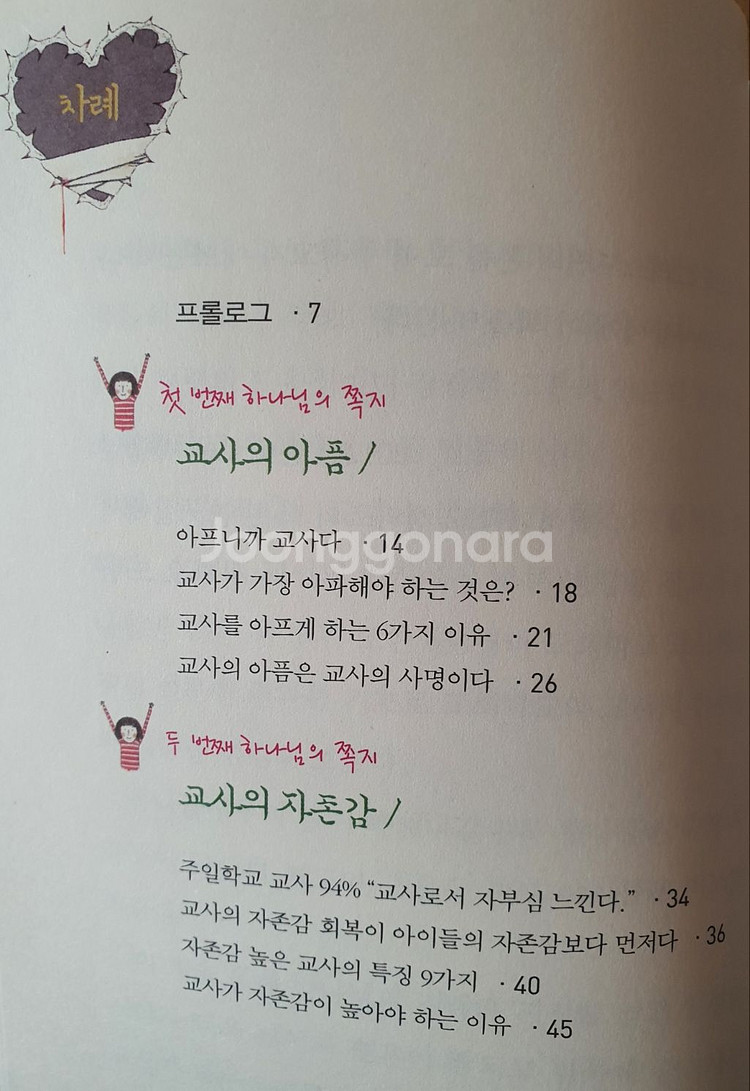 차례
프롤로그 · 7
첫 번째 하나님의 쪽지
교사의 아픔 /
아프니까 교사다 · 14
Joonggonara
교사가 가장 아파해야 하는 것은? · 18
교사를 아프게 하는 6가지 이유 · 21
교사의 아픔은 교사의 사명이다 · 26
두 번째 하나님의 쪽지
교사의 자존감 /
주일학교 교사 94% “교사로서 자부심 느낀다.” · 34
교사의 자존감 회복이 아이들의 자존감보다 먼저다 · 36
자존감 높은 교사의 특징 9가지 · 40
교사가 자존감이 높아야 하는 이유 · 45